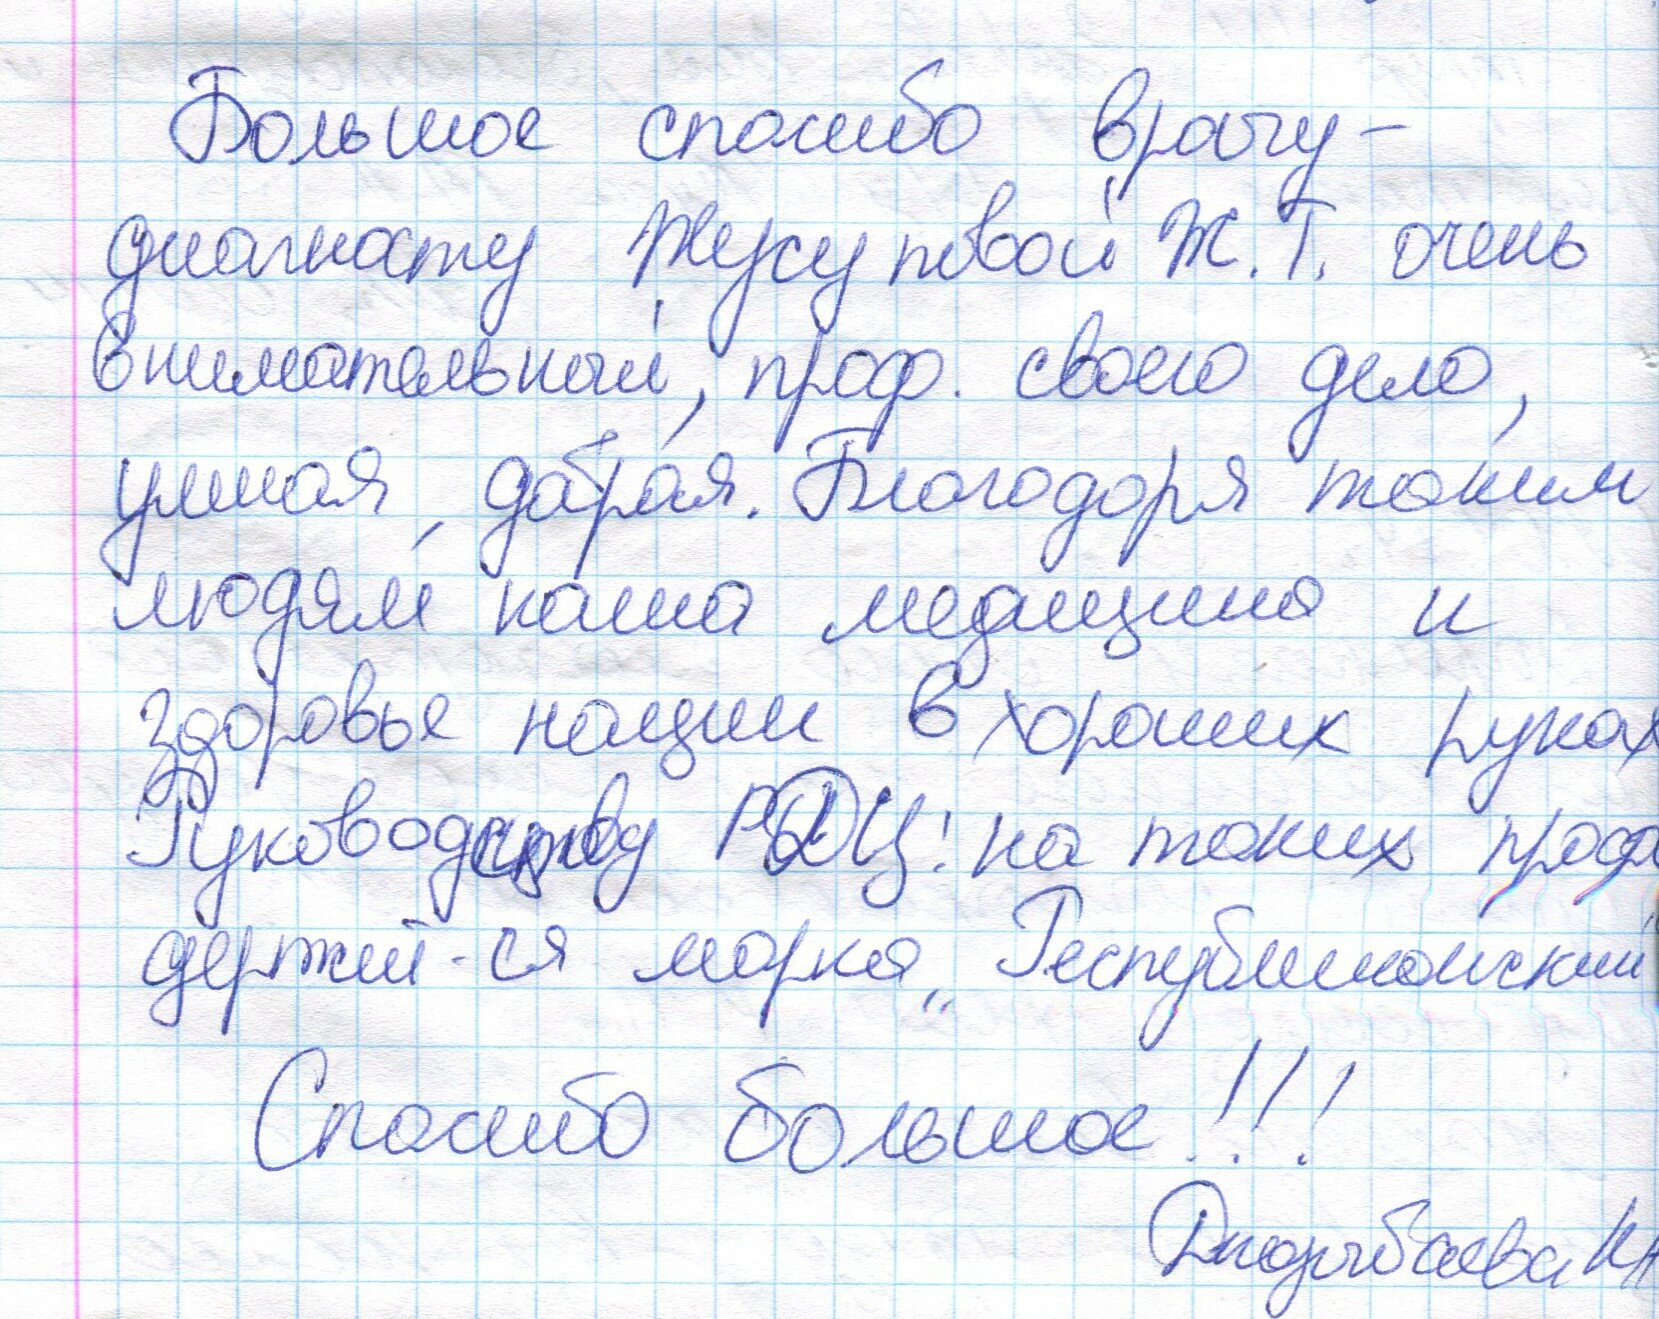 Большое спасибо врачу-
диагносту Жусуповой Ж.Т. очень
внимательный, проф. своего дело,
умная, добрая. Благодоря таким
людям наша медицина и
здоровье нации в хороших руках
Руководству РДЦ! на таких профа
держит-ся марка „Республиканский
Спасибо большое!!!